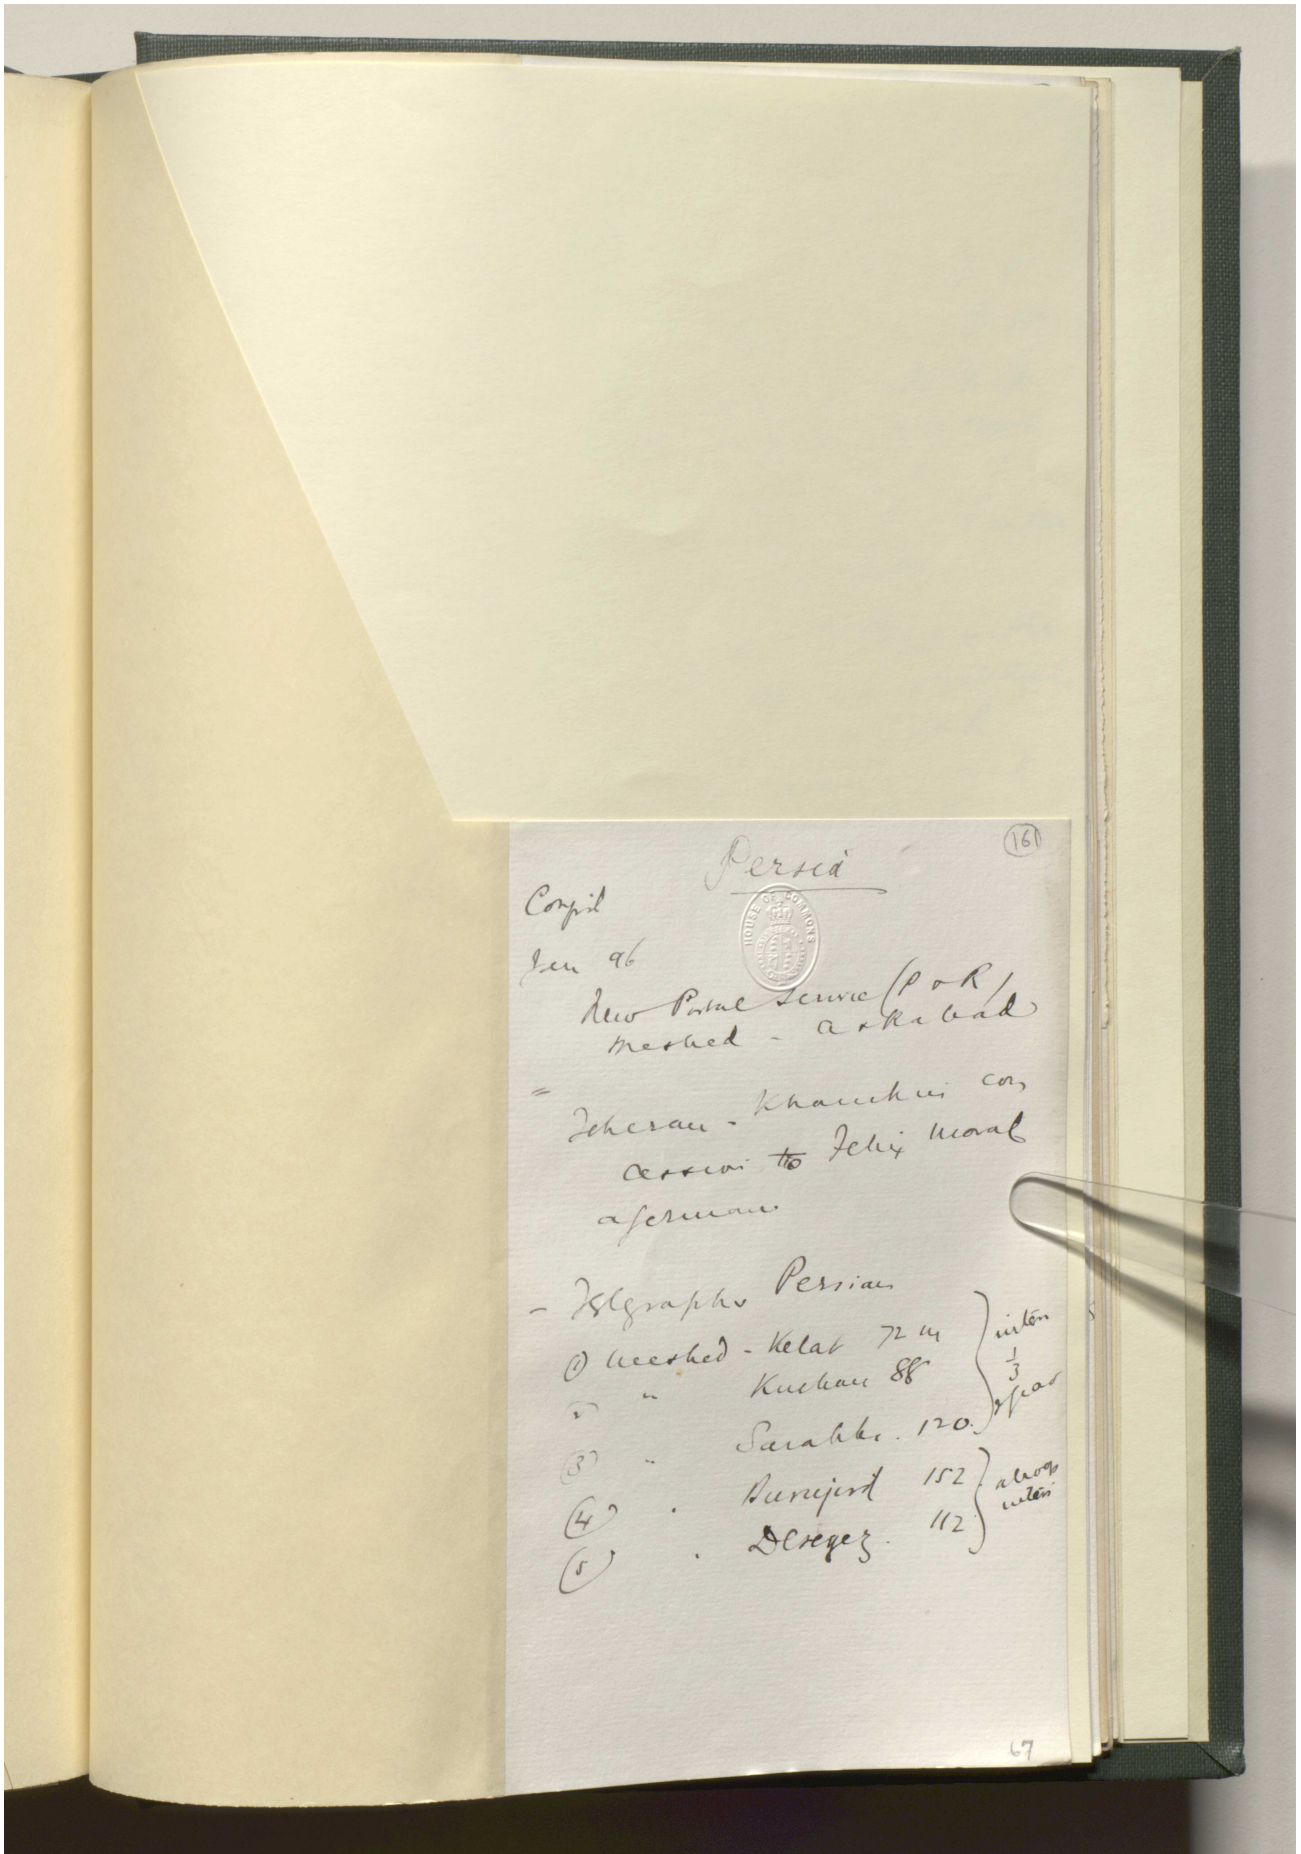 161
Persia
HOUSE OF COMMONS
Jan 96
New Postal Service (P & R)
Meshed - Askabad
"
Teheran - Khanikin con
cession to Felix Moral
a German
- Telegraphs Persian
(1) Meshed - Kelat 72 m
2) " Kuchan 88
(3) " Sarakhs . 120
(4) . Burujird 152
(5) . Deregez . 112
1/3
67